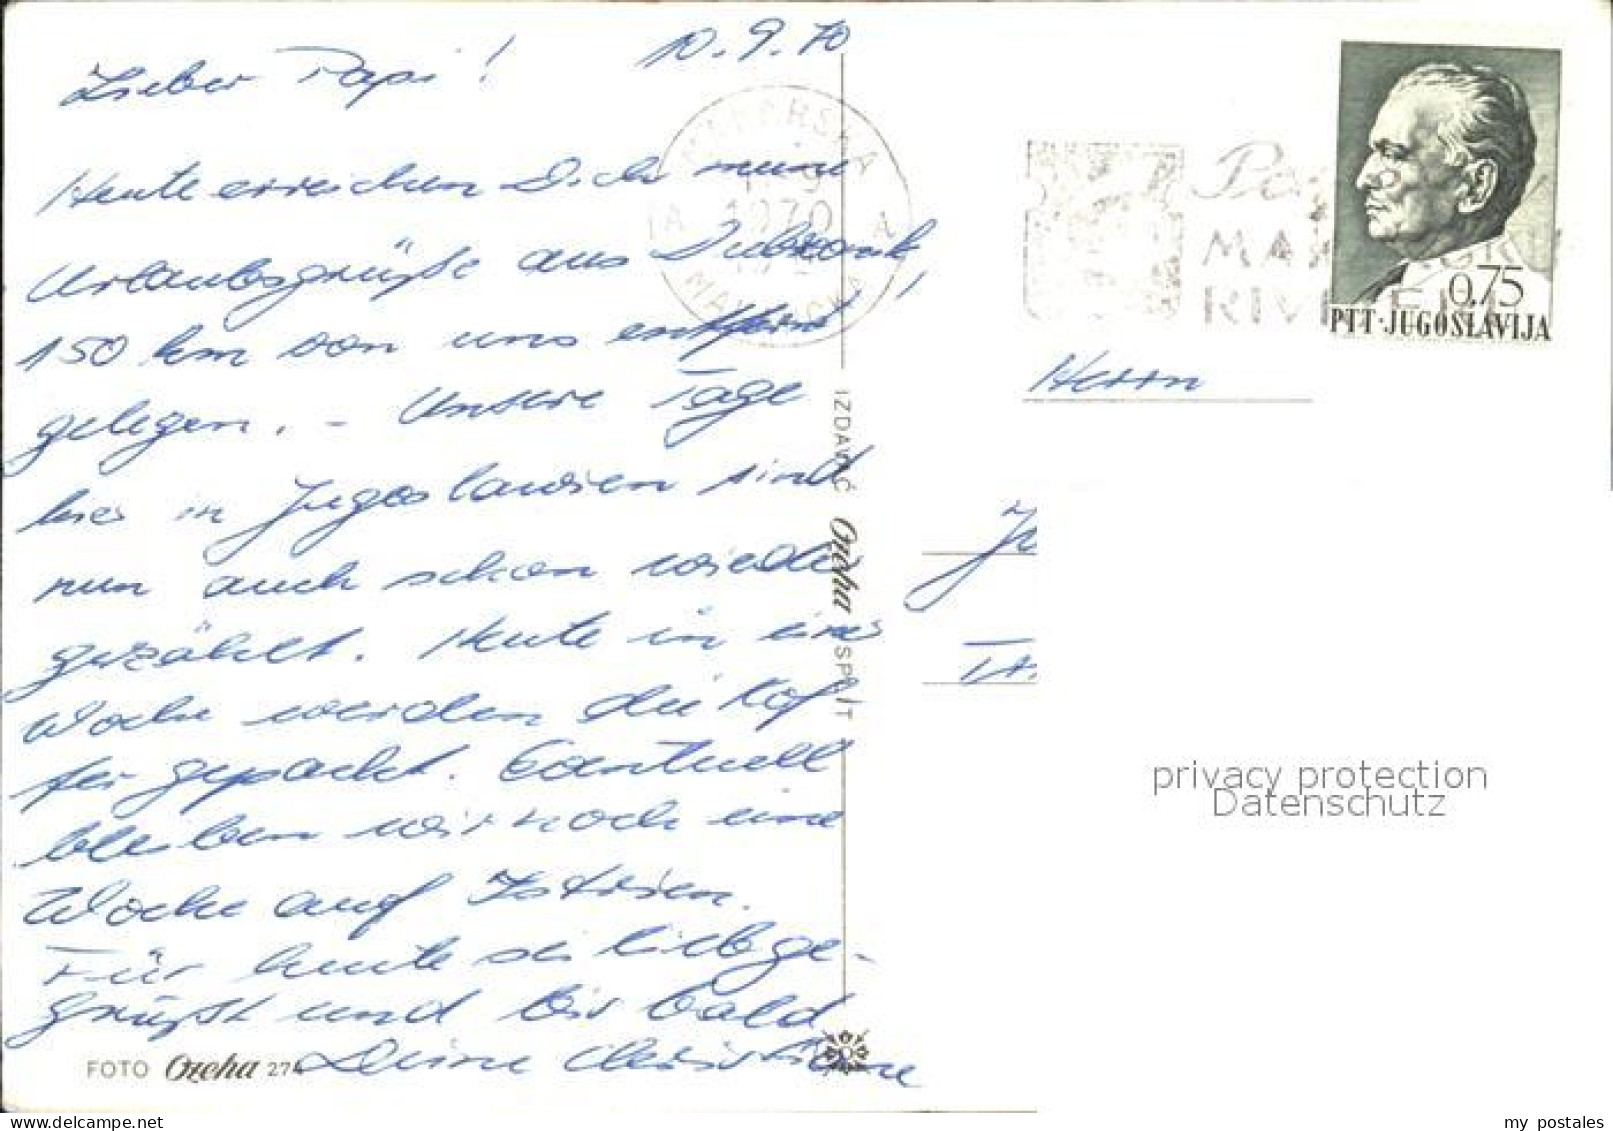 10.9.70
Lieber Papi!
Heute erreichen Dich meine
Urlaubsgrüße aus Dubrovnik,
150 km von uns entfernt
gelegen. - Unsere Tage
hier in Jugoslawien sind
nun auch schon wieder
gezählt. Heute in einer
Woche werden die Kof
fer gepackt. Eventuell
bleiben wir noch eine
Woche auf Istrien.
Für heute sei liebge-
grüßt und bis bald
Deine Christiane
FOTO Ozeha 274
IZDAVAČ Ozeha SPLIT
MAKARSKA
1970
MAKARSKA
MAKARSKU
RIVIJERU
0.75
PTT·JUGOSLAVIJA
Herrn
privacy protection
Datenschutz
my postales
delcampe.net